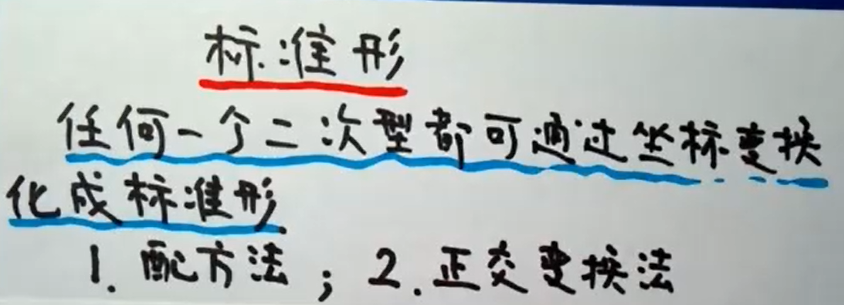 标准形
任何一个二次型都可通过坐标变换
化成标准形.
1. 配方法；2. 正交变换法